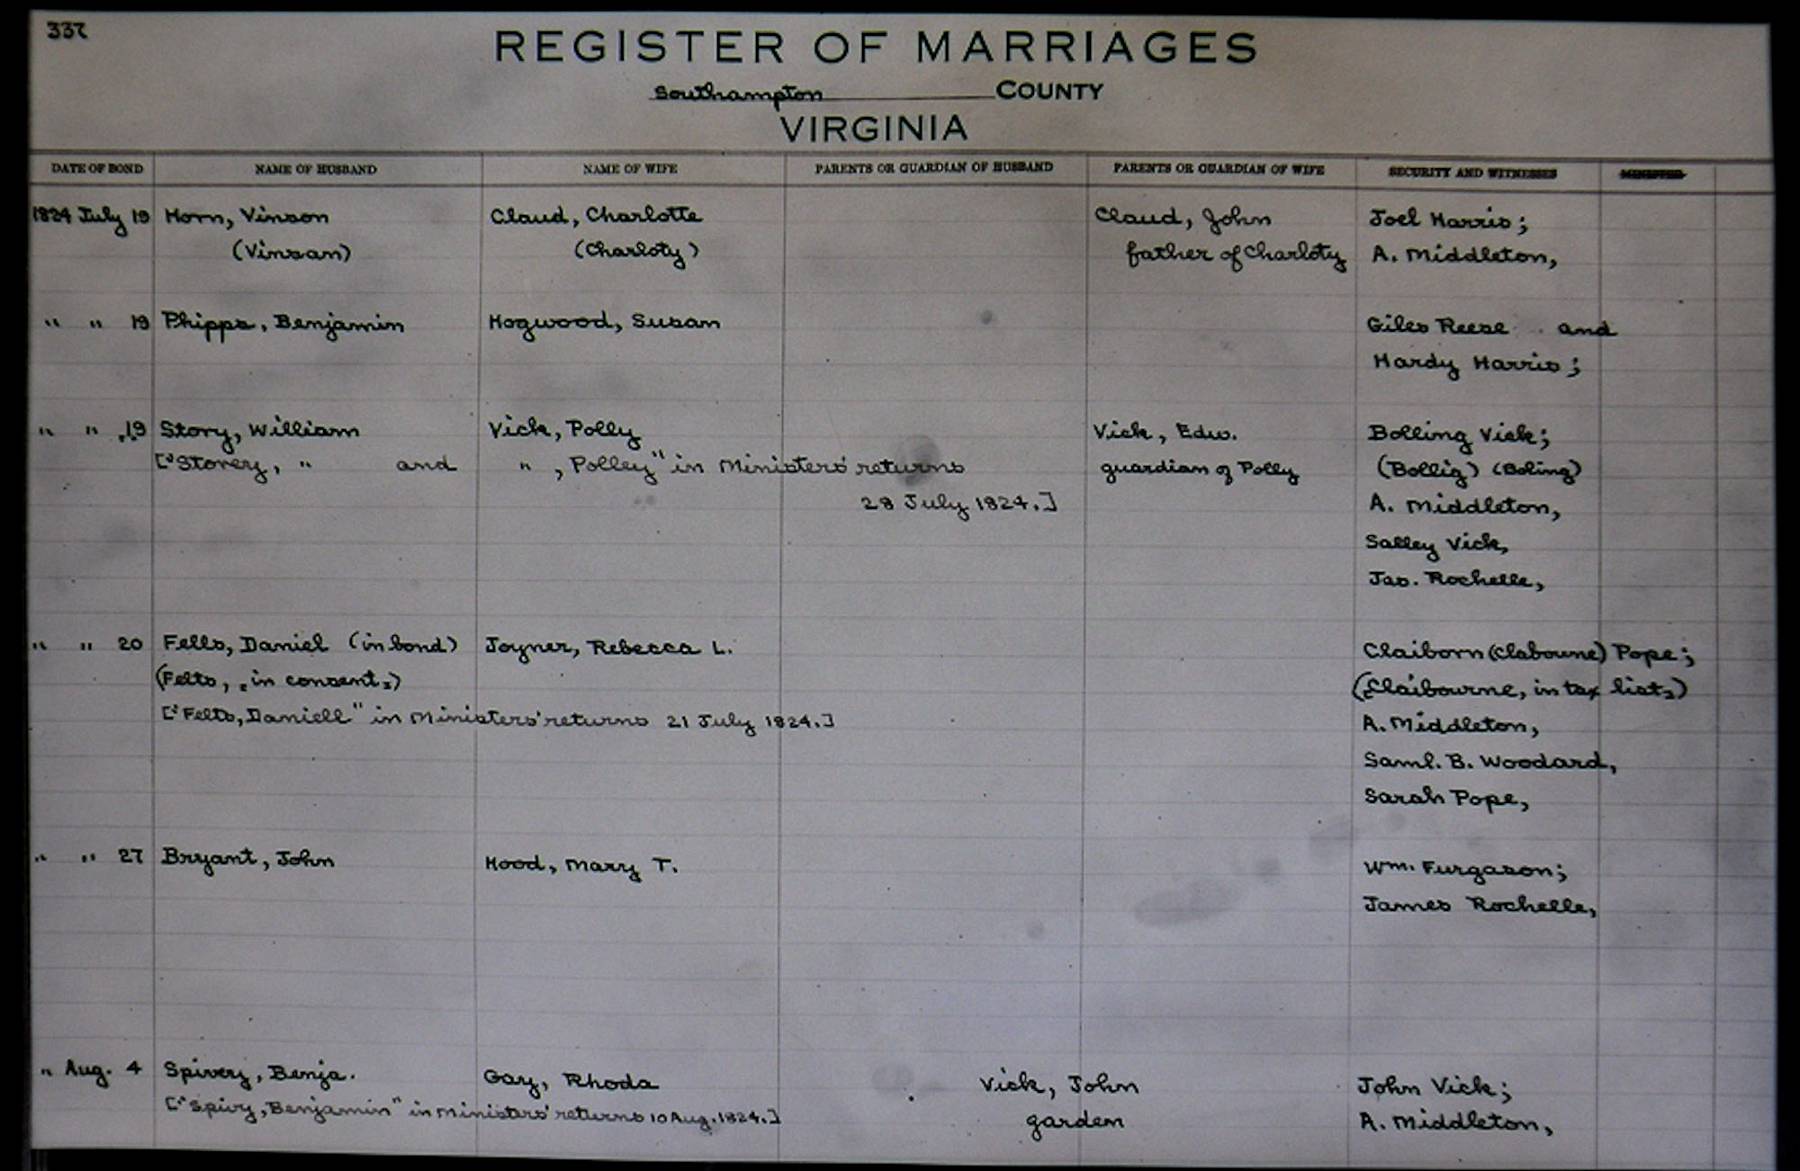 337
REGISTER OF MARRIAGES
Southampton COUNTY
VIRGINIA
DATE OF BOND NAME OF HUSBAND NAME OF WIFE PARENTS OR GUARDIAN OF HUSBAND PARENTS OR GUARDIAN OF WIFE SECURITY AND WITNESSES MINISTER
1824 July 19 Horn, Vinson Claud, Charlotte Claud, John Joel Harris;
(Vinsan) (Charloty) father of Charloty A. Middleton,
" " 19 Phipps, Benjamin Hogwood, Susan Giles Reese and
Hardy Harris;
" " 19 Story, William Vick, Polly Vick, Edw. Bolling Vick;
["Storey, " and " , Polley" in Ministers' returns guardian of Polly (Bollig) (Boling)
28 July 1824.] A. Middleton,
Salley Vick,
Jas. Rochelle,
" " 20 Fells, Daniel (in bond) Joyner, Rebecca L. Claiborn (Claboune) Pope;
(Felts, , in consent,) (Claibourne, in tax lists)
["Felts, Daniell" in Ministers' returns 21 July 1824.] A. Middleton,
Saml. B. Woodard,
Sarah Pope,
" " 27 Bryant, John Hood, Mary T. Wm. Furgason;
James Rochelle,
" Aug. 4 Spivey, Benja. Gay, Rhoda Vick, John John Vick;
["Spivy, Benjamin" in Ministers' returns 10 Aug. 1824.] garden A. Middleton,